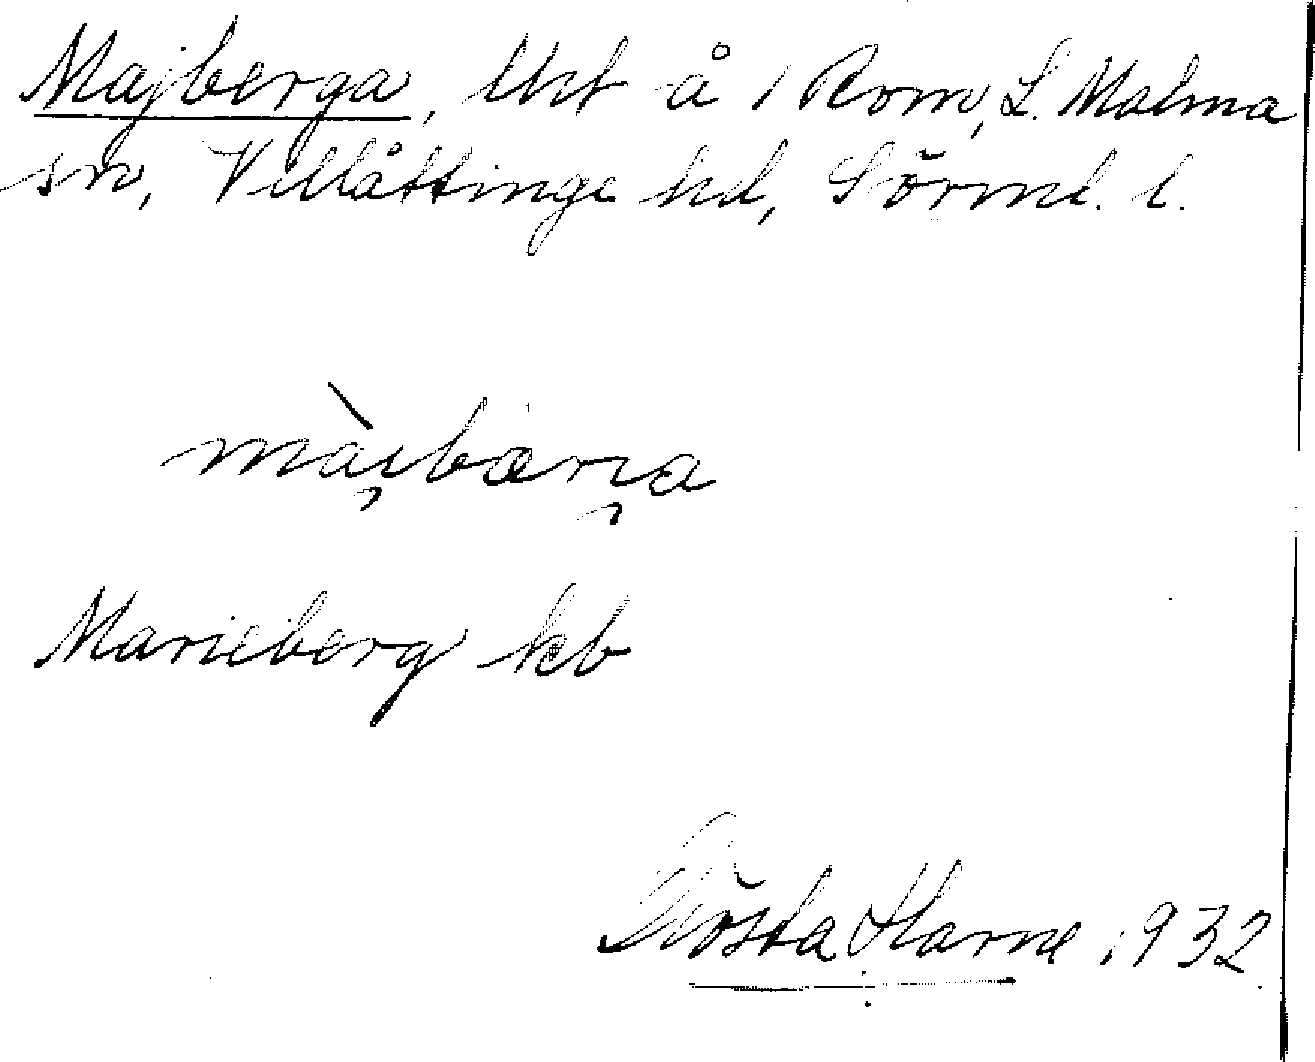 Majberga, lht å 1 Rom, L. Malma
sn, Villåttinge hd, Sörml. l.
màibærja
Marieberg kb
Gösta Harne 1932